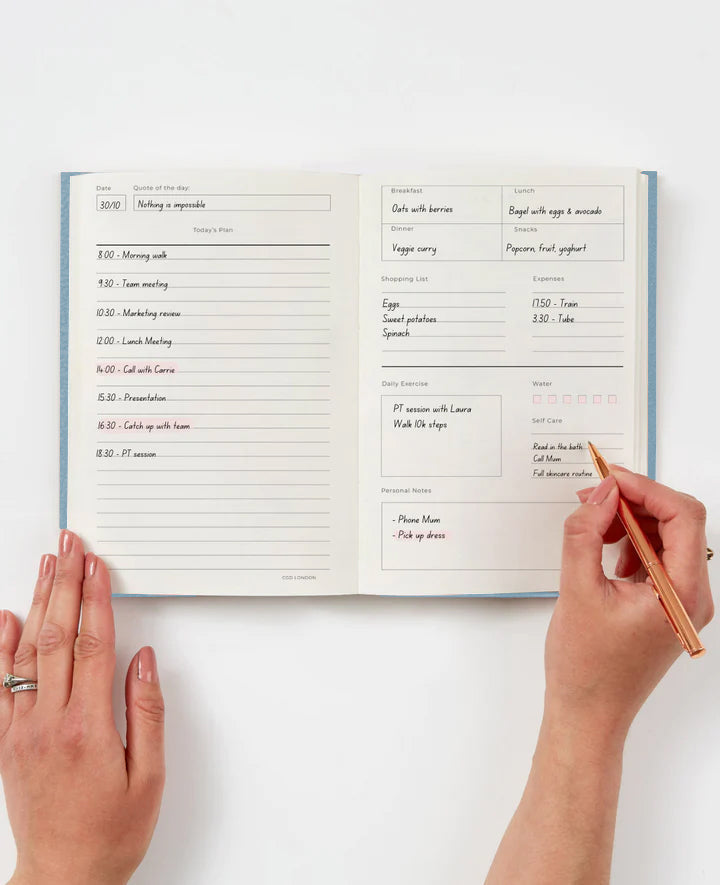 Date Quote of the day:
30/10 Nothing is impossible
Today's Plan
8:00 - Morning walk
9:30 - Team meeting
10:30 - Marketing review
12:00 - Lunch Meeting
14:00 - Call with Carrie
15:30 - Presentation
16:30 - Catch up with team
18:30 - PT session
CGD LONDON
Breakfast Lunch
Oats with berries Bagel with eggs & avocado
Dinner Snacks
Veggie curry Popcorn, fruit, yoghurt
Shopping List
Eggs
Sweet potatoes
Spinach
Expenses
17.50 - Train
3.30 - Tube
Daily Exercise
PT session with Laura
Walk 10k steps
Water
Self Care
Read in the bath
Call Mum
Full skincare routine
Personal Notes
- Phone Mum
- Pick up dress